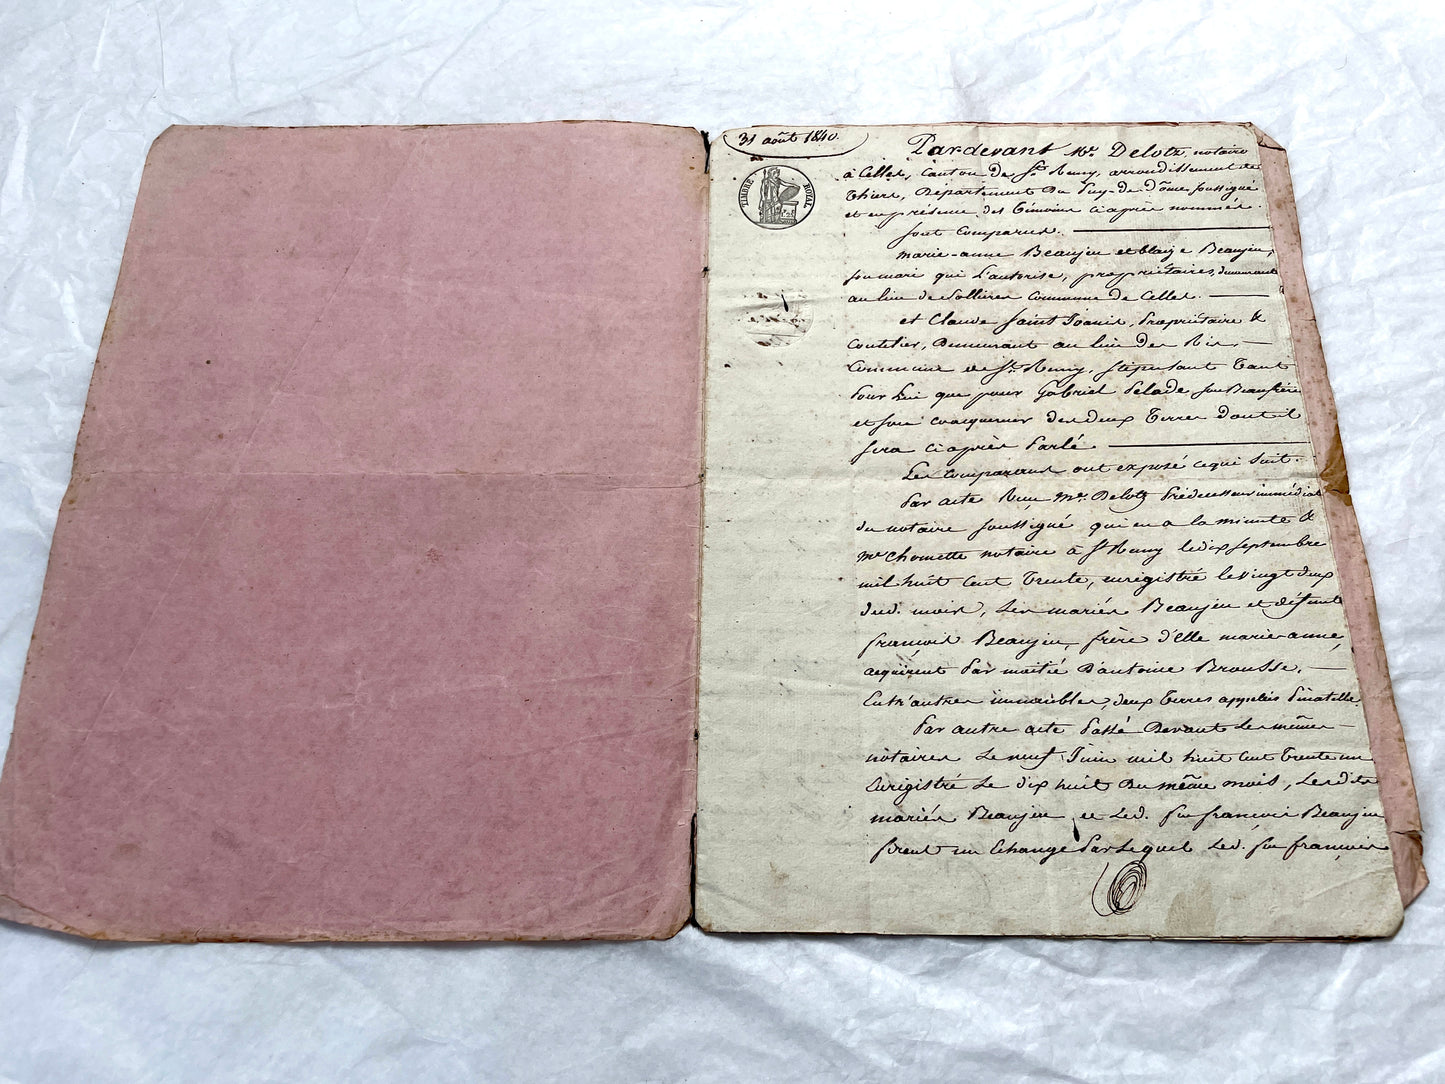 31 août 1840.
TIMBRE ROYAL
Pardevant Me. Delotz, notaire
à Celles, canton de St. Remy, arrondissement de
Thiers, Département du Puy-de-Dôme soussigné
et en présence des témoins ci après nommés.
sont comparus.
marie-anne Beaujeu et blaize Beaujeu,
son mari qui l'autorise, propriétaires, demeurant
au lieu de Sollieres commune de Celles.
et Claude Saint Joanis, Propriétaire &
Coutelier, demeurant au lieu des Ris,
Commune de St. Remy, stipulant tant
Pour lui que pour Gabriel Pelade son Beaufrère
et son coacquereur des deux terres dont il
sera ci après Parlé.
Les comparans ont exposé ce qui suit.
Par acte reçu Me. Delotz Prédécesseur immédiat
du notaire soussigné qui en a la minute &
Me Chomette notaire à St Remy le dix septembre
mil huit cent trente, enregistré le vingt deux
dud. mois, Les mariés Beaujeu et défunt
françois Beaujeu, frère d'elle marie-anne,
acquirent Par moitié d'antoine Brousse,
Entr'autres immeubles, deux terres appelées Pinatelle,
Par autre acte Passé devant les mêmes
notaires le neuf Juin mil huit cent trente un
Enregistré le dix huit du même mois, Lesdits
mariés Beaujeu et Led. feu françois Beaujeu
firent un Echange Par lequel Led. feu françois